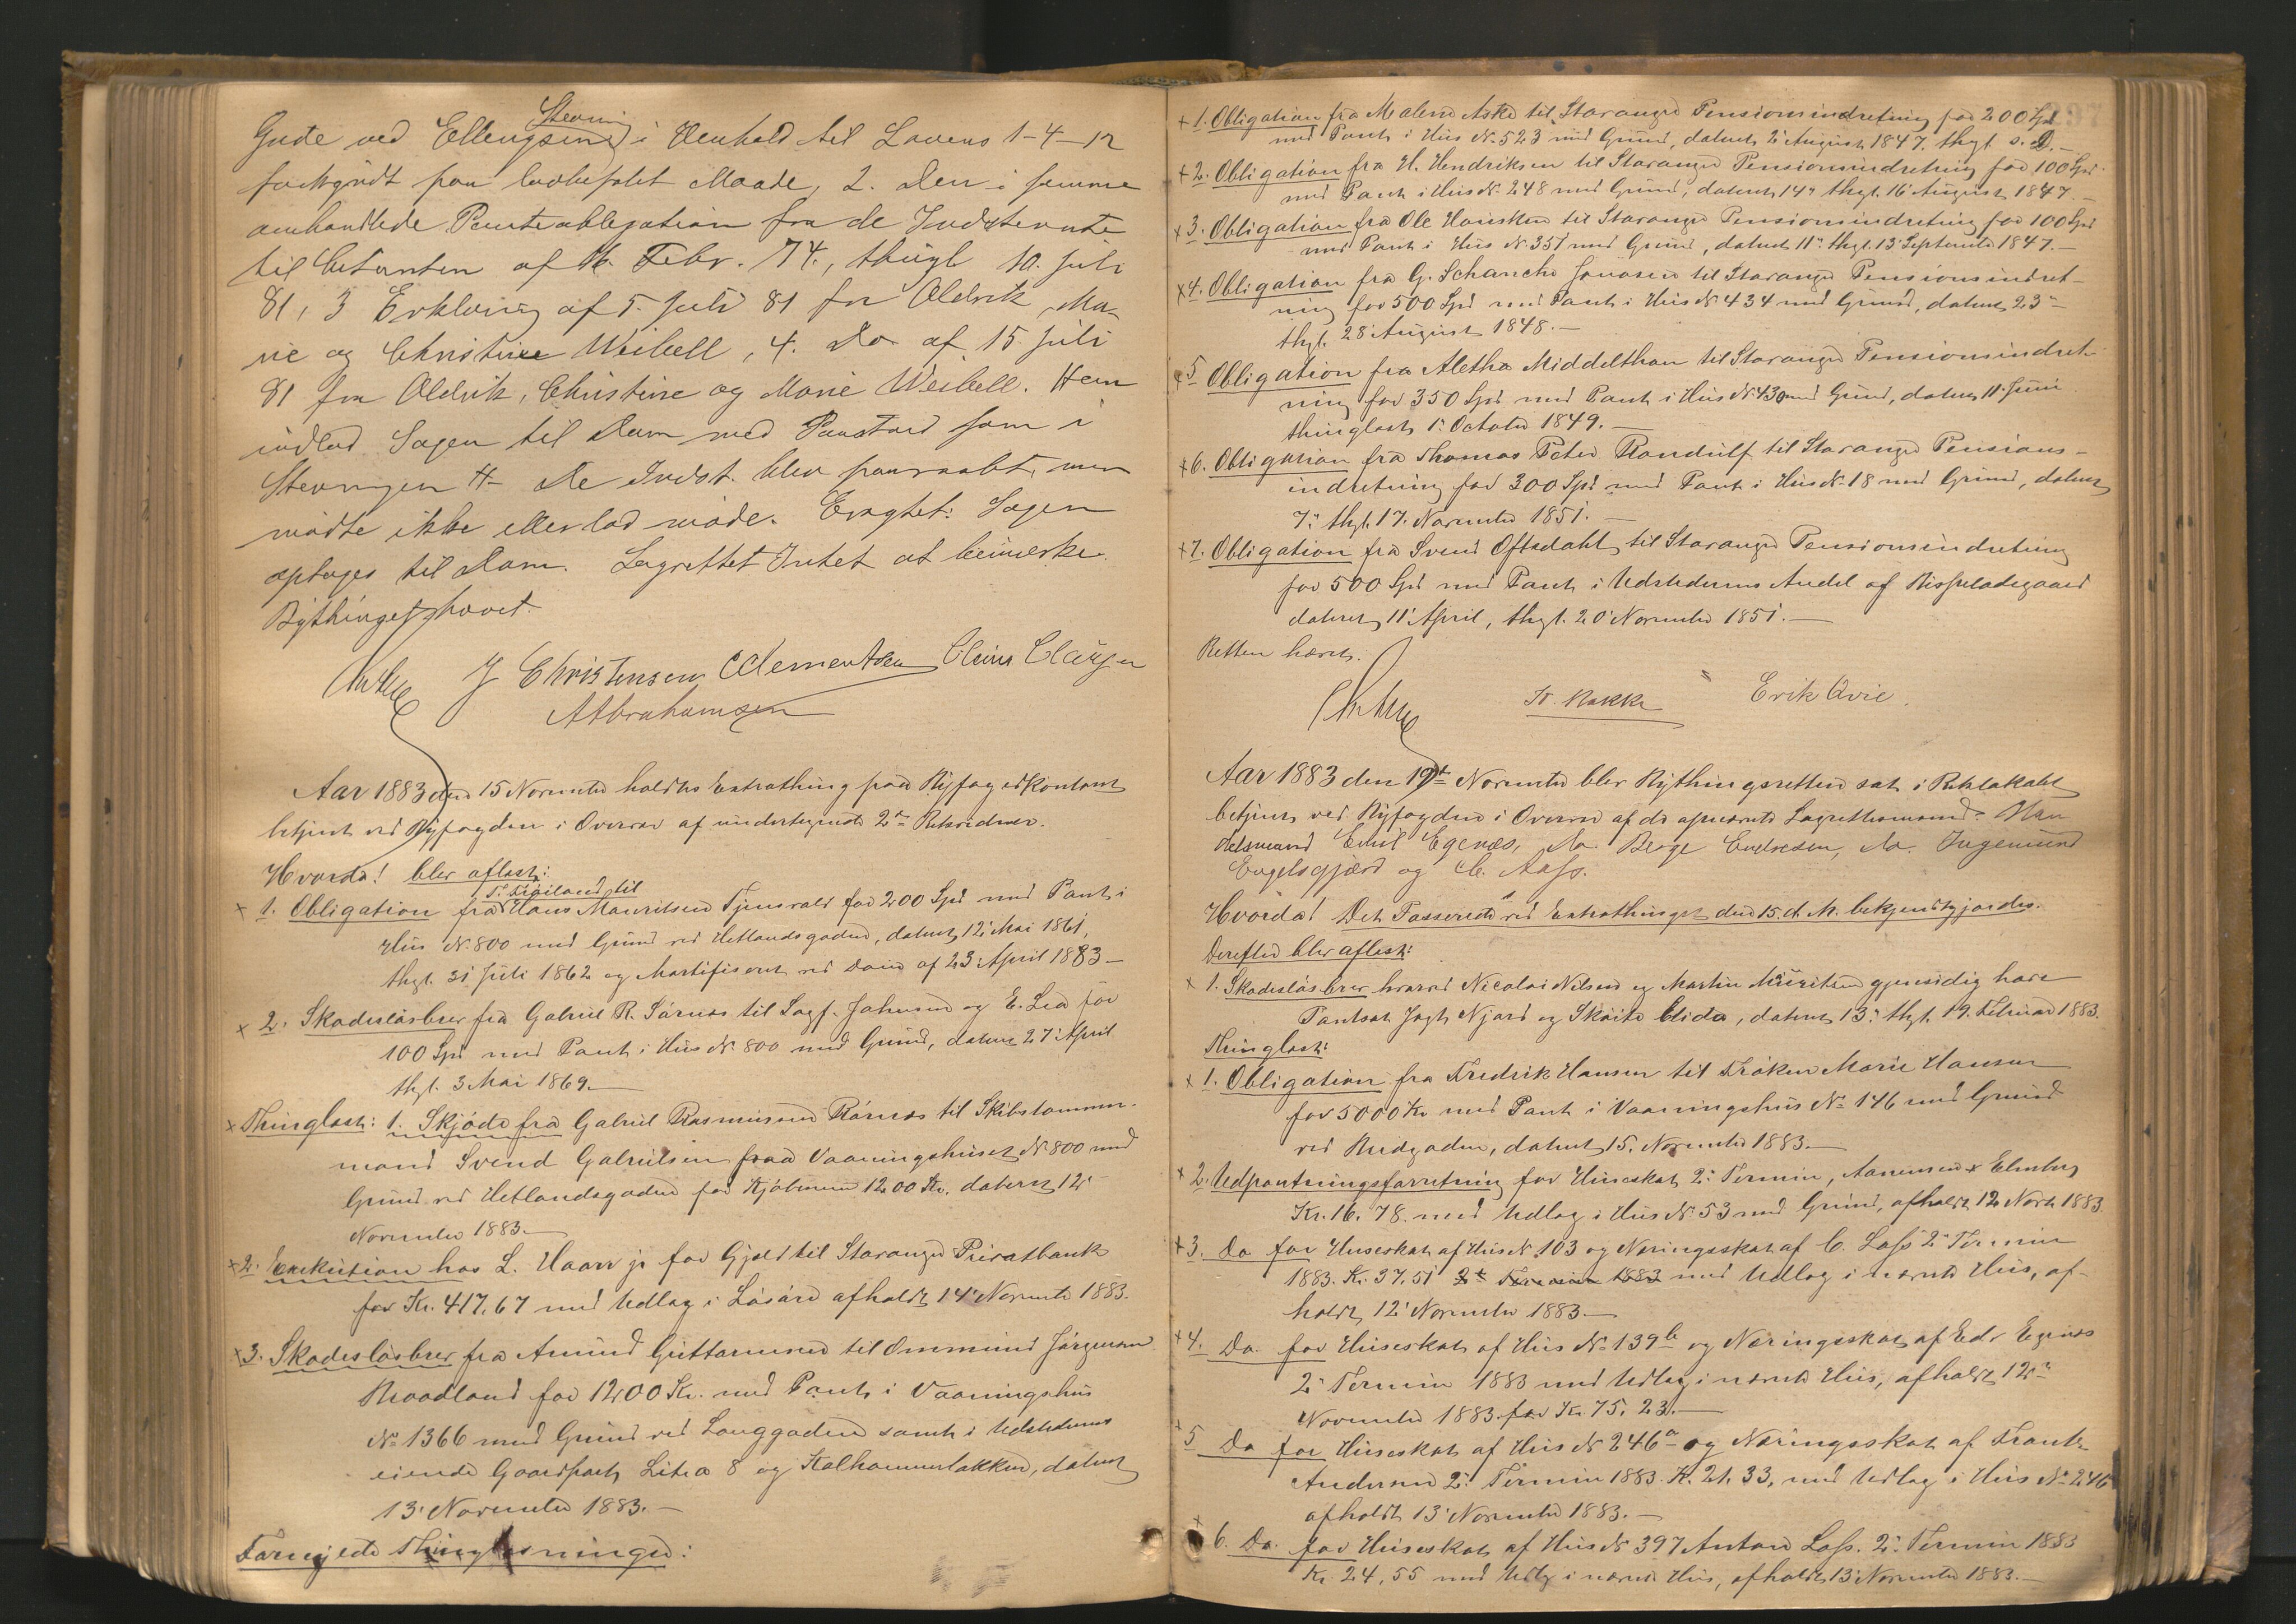 Stevning
Gude ved Ellengsen i Henhold til Lovens 1-4-12
forkyndt paa lovbefalet Maade, 2. Den i samme
omhandlede Panteobligation fra de Indstevnte
til Citanten af 16. Febr. 74., thingl 10. Juli
81, 3 Erklæring af 5. Juli 81 fra Oldrik, Ma-
rie og Christine Weibell, 4. Do af 15 Juli
81 fra Oldrik, Christine og Marie Weibell. Han
indlod Sagen til Dom med Paastand som i
Stevningen De Indst. blev paaraabt, men
mødte ikke eller lod møde. Eragtet: Sagen
optages til Dom. Lagrettet Intet at bemærke.
Bythinget hævet.
J Christensen Clementsen Claus Clausen
A Abrahamsen
Aar 1883 den 15 November holdtes Extrathing paa Byfogedkontoret
betjent ved Byfogden i Overvær af undertegnede 2de Retsvidner.
Hvorda! blev aflæst:
T. Vaaland til
1. Obligation fra Hans Mauritsen Tjensvold for 200 Spd med Pant i
Hus No 800 med Grund ved Hetlandsgaden, dateret 12' Mai 1861,
thgl. 31 Juli 1862 og Mortifiseret ved Dom af 23 April 1883 —
2. Skadesløsbrev fra Gabriel R. Sørnæs til Sagf. Johnsen og E. Lea for
100 Spd med Pant i Hus No 800 med Grund, dateret 27' April
thgl. 3 Mai 1869.—
Thinglæst: 1. Skjøde fra Gabriel Rasmussen Rørnæs til Skibstømmer-
mand Svend Gabrielsen paa Vaaningshuset No 800 med
Grund ved Hetlandsgaden for Kjøbesum 1200 Kr. dateret 12'
November 1883.—
2. Exekution hos L. Haarr jr for Gjæld til Stavanger Privatbank
for Kr. 417,67 med Udlæg i Løsøre afholdt 14' November 1883.
3. Skadesløsbrev fra Amund Guttormsen til Ommund Jørgensen
Moodland for 1200 Kr. med Pant i Vaaningshus
No 1366 med Grund ved Langgaden samt i Udstederens
eiende Gaardpart Litra 8 og Stolhammerløkken, dateret
13' November 1883.—
Fornyede Thinglæsninger:
1. Obligation fra Malene Aske til Stavanger Pensionsindretning for 200 Spd
med Pant i Hus No 523 med Grund, dateret 2' August 1847. thgl. s. D.—
2. Obligation fra H. Hendriksen til Stavanger Pensionsindretning for 100 Spd
med Pant i Hus No 248 med Grund, dateret 14' thgl. 16' August 1847.—
3. Obligation fra Ole Hausken til Stavanger Pensionsindretning for 100 Spd
med Pant i Hus No 351 med Grund, dateret 11' thgl. 13' September 1847.—
4. Obligation fra G. Schanche Jonasen til Stavanger Pensionsindret-
ning for 500 Spd med Pant i Hus No 434 med Grund, dateret 23'
thgl. 28' August 1848.—
5 Obligation fra Aletha Middelthon til Stavanger Pensionsindret-
ning for 350 Spd med Pant i Hus No 430 med Grund, dateret 11' Juni
thinglæst 1' October 1849.—
6. Obligation fra Thomas Peter Randulf til Stavanger Pensions-
indretning for 300 Spd med Pant i Hus No 18 med Grund, dateret
7' thgl. 17. November 1851.—
7. Obligation fra Svend Oftedahl til Stavanger Pensionsindretning
for 500 Spd med Pant i Udstederens Andel af Bispeladegaard
dateret 11' April, thgl. 20' November 1851.—
Retten hævet.
N. Kokke Erik Qvie.
Aar 1883 den 19de November blev Bythingsretten sat i Retslokalet
betjent ved Byfogden i Overvær af de opnævnte Lagrettesmænd: Han
delsmand Emil Egenæs, do. Berge Endresen, do. Ingemund
Engelsgjærd og C. Aass.
Hvorda! Det Passerede ved Extrathinget den 15. d. M. bekjendtgjordes.
Derefter blev aflæst:
1. Skadesløsbrev hvorved Nicolai Nilsen og Martin Mauritsen gjensidig have
Pantsat Jagt Njord og Skøite Elida, dateret 13' thgl. 19. Februar 1883.
Thinglæst:
1. Obligation fra Fredrik Hansen til Frøken Marie Hansen
for 5000 Kr med Pant i Vaaningshus No 146 med Grund
ved Bredgaden, dateret 15. November 1883.—
2. Udpantningsforretning for Huseskat 2' Termin, Aanensen & Elmberg
Kr. 16. 78. med Udlæg i Hus No 53 med Grund, afholdt 12 Novb 1883.
3. Do for Huseskat af Hus No 103 og Næringsskat af C. Lass 2' Termin
1883. Kr. 37,51 2de Termin 1883 med Udlæg i nævnte Hus, af-
holdt 12' November 1883.—
4. Do. for Huseskat af Hus No 139b og Næringsskat af Edv Egenæs
2' Termin 1883 med Udlæg i nævnte Hus, afholdt 12'
November 1883. for Kr. 75. 23.—
5 Do for Huseskat af Hus No 246a og Næringsskat af Frantz
Andersen 2' Termin 1883. K. 21. 33, med Udlæg i Hus No 246
afholdt 13' November 1883.—
6. Do. for Huseskat af Hus No 397 Anton Lass. 2' Termin 1883
Kr. 24,55 med Udlæg i nævnte Hus, afholdt 13' November 1883.—